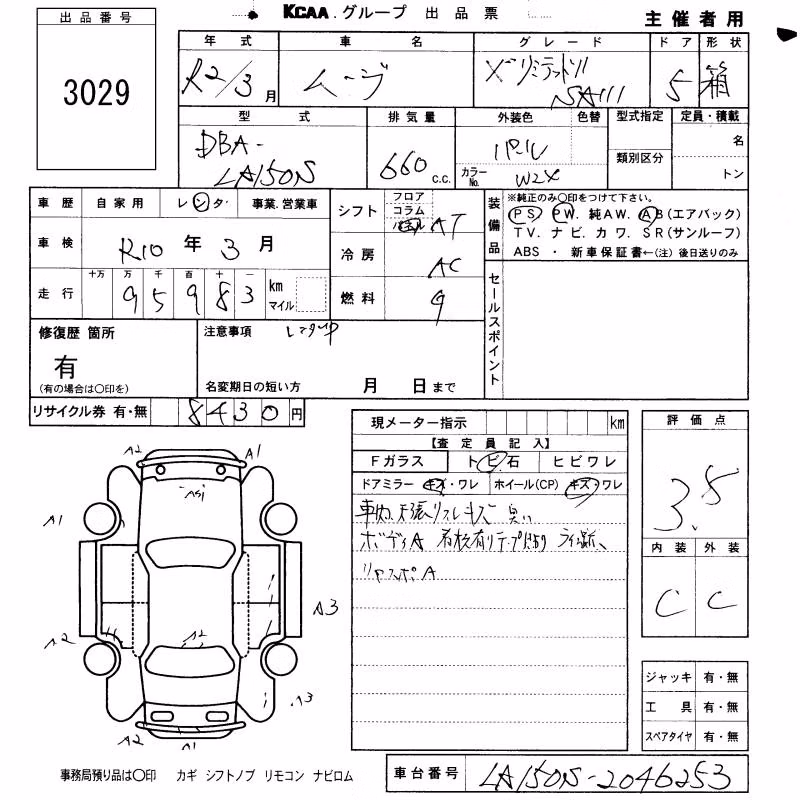 KCAA.グループ 出品票
主催者用
出品番号
3029
年式 車名 グレード ドア 形状
R2/3月 ムーヴ Xリミテッドⅱ SAⅲ 5 箱
型式 排気量 外装色 色替 型式指定 定員・積載
DBA-
LA150S
660 c.c.
パール
カラーNo. W24
類別区分
名
トン
車歴 自家用 レンタ 事業.営業車
車検 R10年3月
走行 十万 万 千 百 十 一
95983 km マイル
シフト フロア コラム AT
冷房 AC
燃料 G
装備品
※純正のみ〇印をつけて下さい。
PS PW. 純AW. AB(エアバック)
TV. ナビ. カワ. SR(サンルーフ)
ABS ・ 新車保証書←(注) 後日送りのみ
セールスポイント
修復歴 箇所
有
(有の場合は〇印を)
注意事項
レンタUP
名変期日の短い方 月 日まで
リサイクル券 有・無 8430円
現メーター指示 km
【査定員記入】
Fガラス トビ石 ヒビワレ
ドアミラー キズ・ワレ ホイール(CP) キズ・ワレ
車内天張りスレキズ 臭い
ボディA
リヤスポA
評価点
3.5
内装 外装
C C
ジャッキ 有・無
工具 有・無
スペアタイヤ 有・無
A2 A1
AS1
A1
A3
A2 A2
A3
A2 A1
事務局預り品は〇印 カギ シフトノブ リモコン ナビロム
車台番号 LA150S-2046253